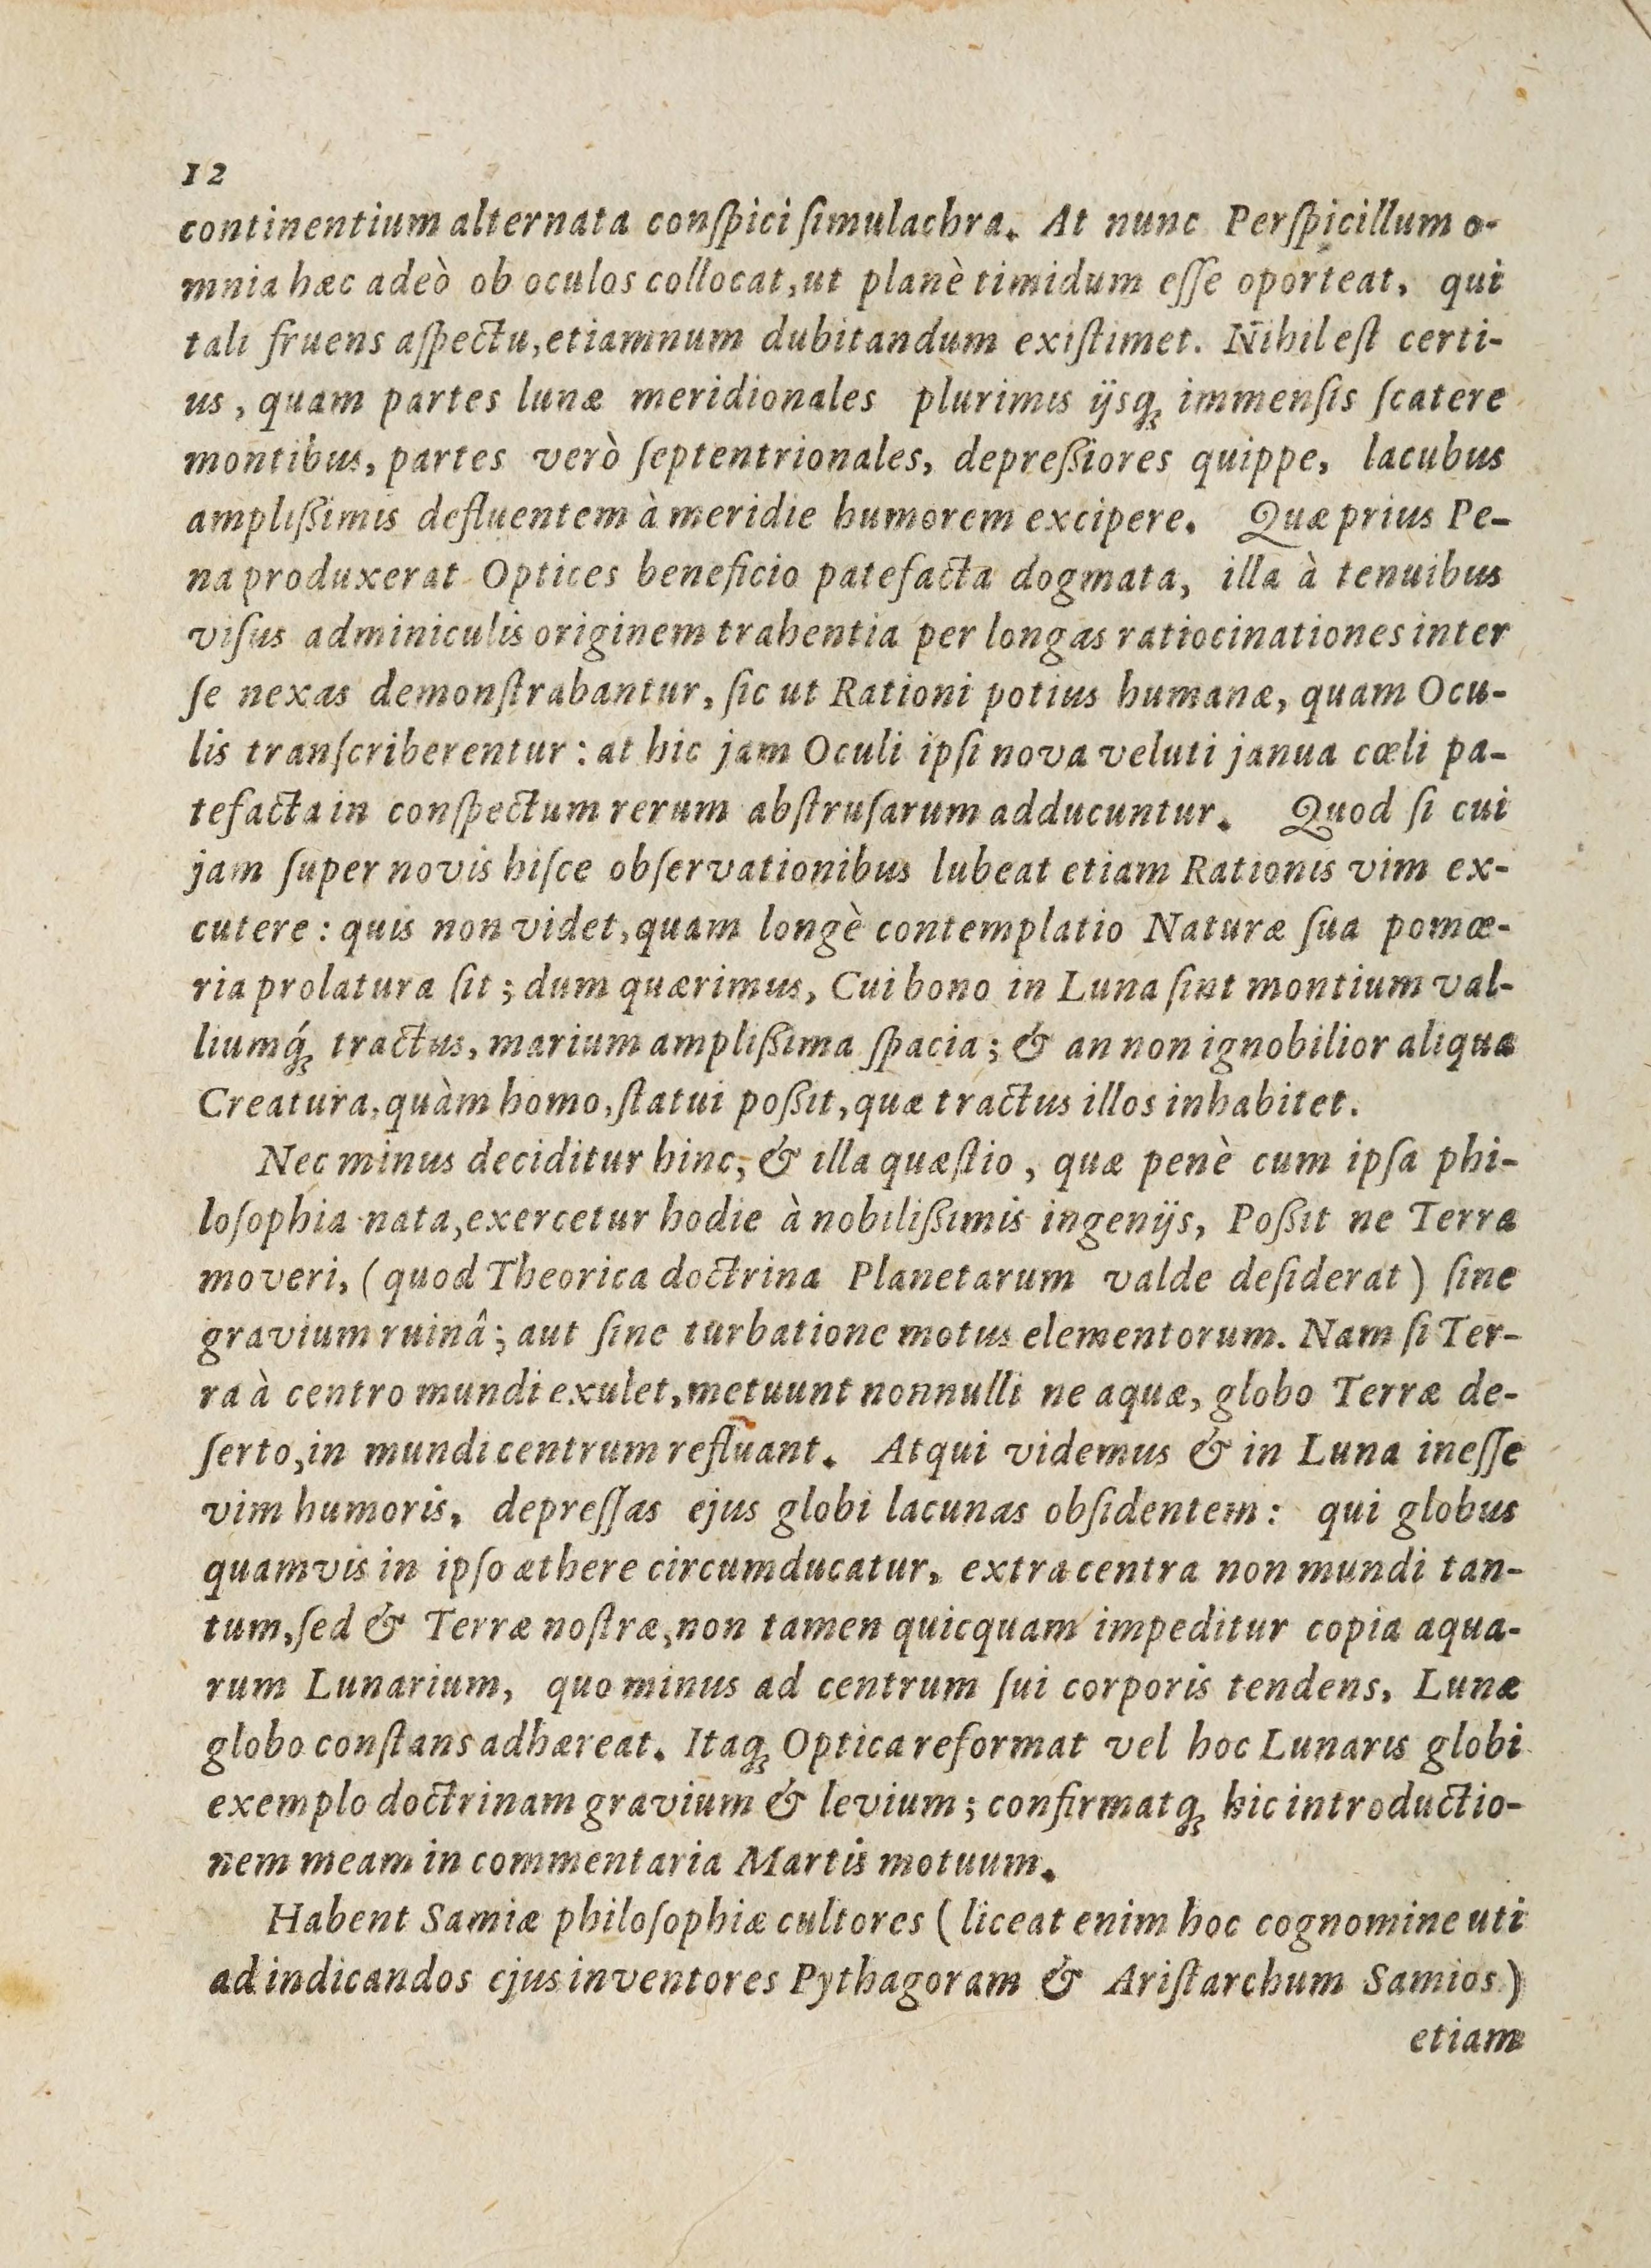 12
continentium alternata conſpici ſimulachra. At nunc Perſpicillum o-
mnia hæc adeò ob oculos collocat, ut planè timidum eſſe oporteat, qui
tali fruens aſpectu, etiamnum dubitandum exiſtimet. Nihil eſt certi-
us, quam partes lunæ meridionales plurimis ijsq; immenſis ſcatere
montibus, partes verò ſeptentrionales, depreßiores quippe, lacubus
amplißimis defluentem à meridie humorem excipere. Quæ prius Pe-
na produxerat Optices beneficio patefacta dogmata, illa à tenuibus
viſus adminiculis originem trahentia per longas ratiocinationes inter
ſe nexas demonſtrabantur, ſic ut Rationi potius humanæ, quam Ocu-
lis tranſcriberentur: at hic jam Oculi ipſi nova veluti janua cœli pa-
tefacta in conſpectum rerum abſtruſarum adducuntur. Quod ſi cui
jam ſuper novis hiſce obſervationibus lubeat etiam Rationis vim ex-
cutere: quis non videt, quam longè contemplatio Naturæ ſua pomœ-
ria prolatura ſit; dum quærimus, Cui bono in Luna ſint montium val-
liumq́; tractus, marium amplißima ſpacia; & an non ignobilior aliqua
Creatura, quàm homo, ſtatui poßit, quæ tractus illos inhabitet.
Nec minus deciditur hinc, & illa quæſtio, quæ penè cum ipſa phi-
loſophia nata, exercetur hodie à nobilißimis ingenijs, Poßit ne Terra
moveri, (quod Theorica doctrina Planetarum valde deſiderat) ſine
gravium ruinâ; aut ſine turbatione motus elementorum. Nam ſi Ter-
ra à centro mundi exulet, metuunt nonnulli ne aquæ, globo Terræ de-
ſerto, in mundi centrum refluant. Atqui videmus & in Luna ineſſe
vim humoris, depreſſas ejus globi lacunas obſidentem: qui globus
quamvis in ipſo æthere circumducatur, extra centra non mundi tan-
tum, ſed & Terræ noſtræ, non tamen quicquam impeditur copia aqua-
rum Lunarium, quo minus ad centrum ſui corporis tendens, Lunæ
globo conſtans adhæreat. Itaq; Optica reformat vel hoc Lunaris globi
exemplo doctrinam gravium & levium; confirmatq; hic introductio-
nem meam in commentaria Martis motuum.
Habent Samiæ philoſophiæ cultores (liceat enim hoc cognomine uti
ad indicandos ejus inventores Pythagoram & Ariſtarchum Samios)
etiam